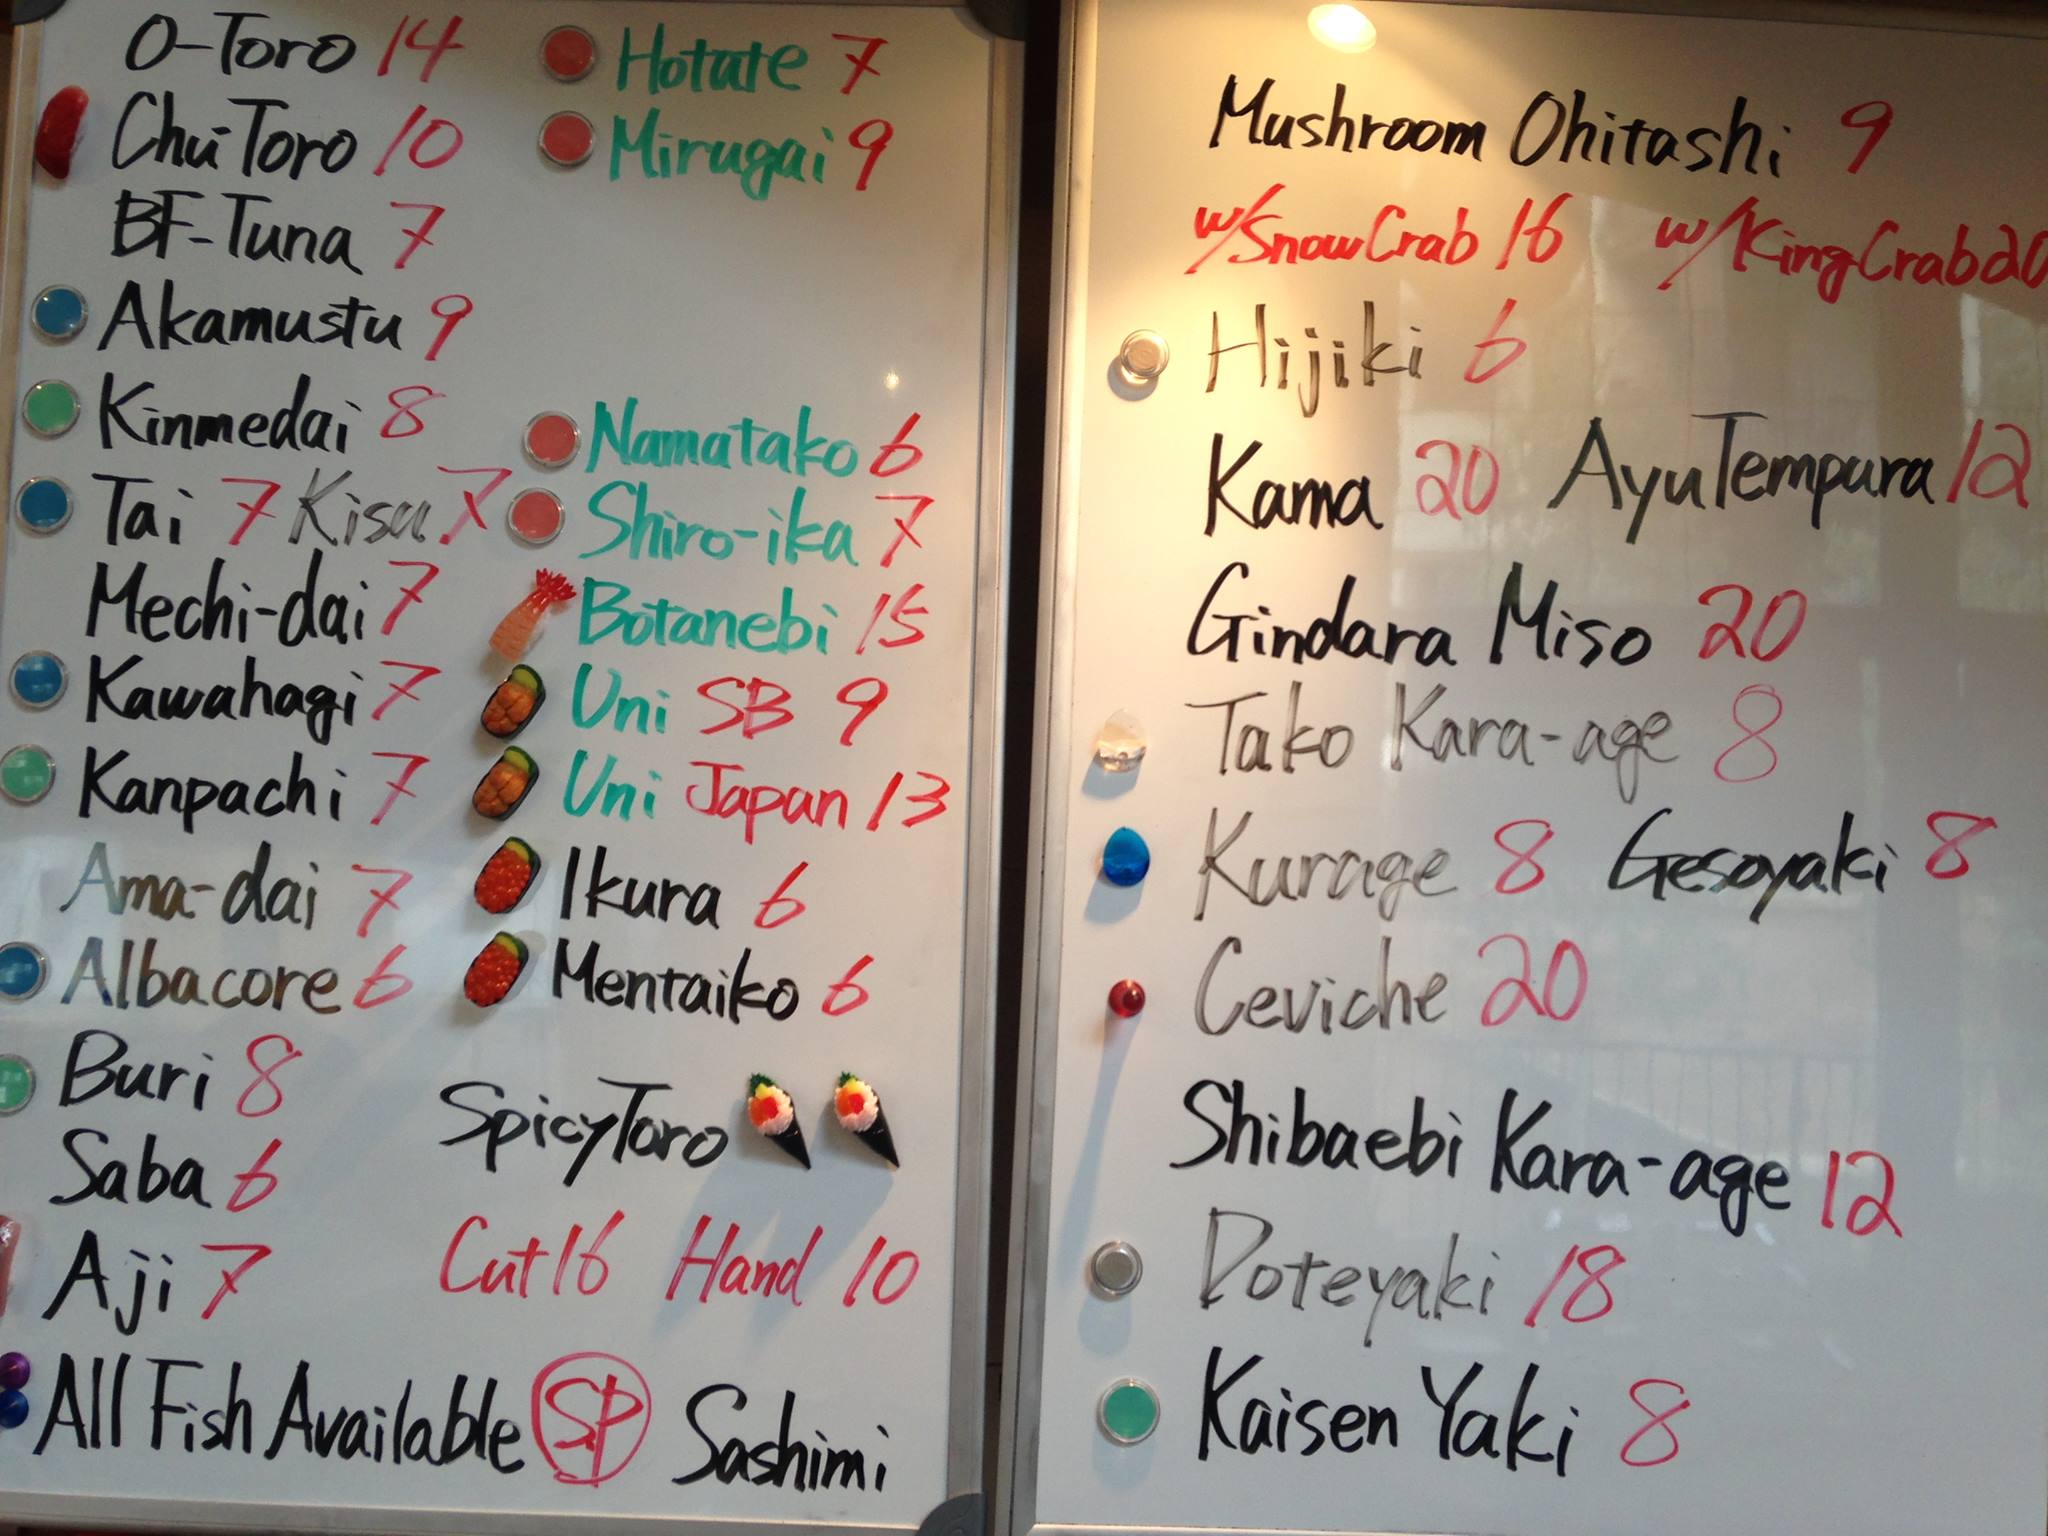 O-Toro 14
Chu Toro 10
BF-Tuna 7
Akamustu 9
Kinmedai 8
Tai 7 Kisu 7
Mechi-dai 7
Kawahagi 7
Kanpachi 7
Ama-dai 7
Albacore 6
Buri 8
Saba 6
Aji 7
Hotate 7
Mirugai 9
Namatako 6
Shiro-ika 7
Botanebi 15
Uni SB 9
Uni Japan 13
Ikura 6
Mentaiko 6
Spicy Toro
Cut 16 Hand 10
All Fish Available SP Sashimi
Mushroom Ohitashi 9
w/Snow Crab 16 w/King Crab 20
Hijiki 6
Kama 20 Ayu Tempura 12
Gindara Miso 20
Tako Kara-age 8
Kurage 8 Gesoyaki 8
Ceviche 20
Shibaebi Kara-age 12
Doteyaki 18
Kaisen Yaki 8